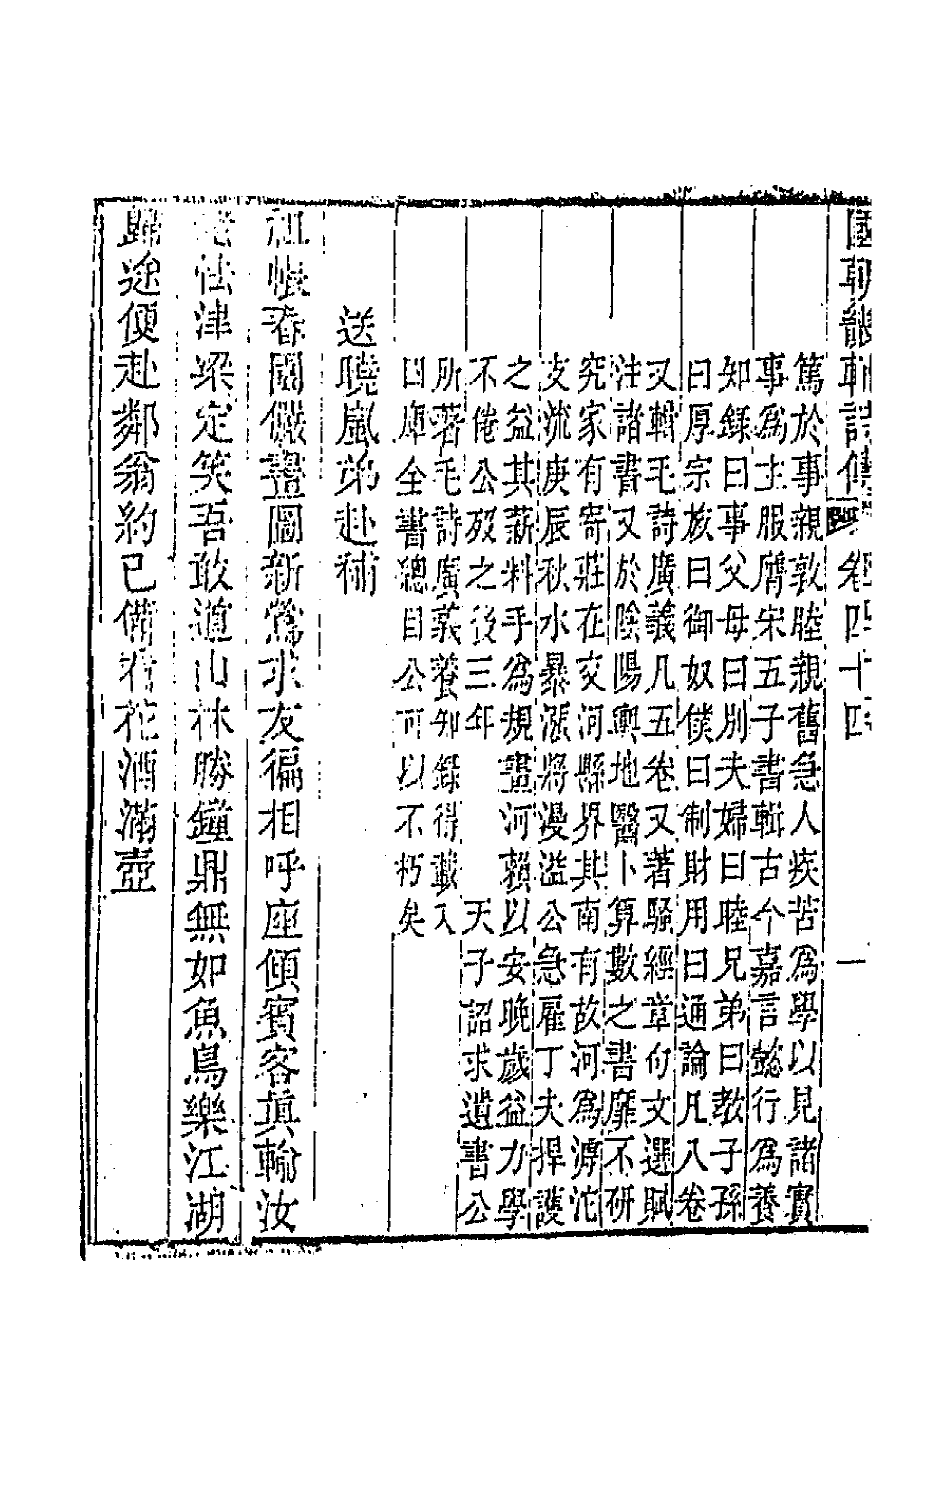 國朝畿輔詩傳 卷四十四 一
篤於事親敦睦親舊急人疾苦為學以見諸實
事為主服膺宋五子書輯古今嘉言懿行為養
知錄曰事父母曰別夫婦曰睦兄弟曰教子孫
曰厚宗族曰御奴僕曰制財用曰通論凡八卷
又輯毛詩廣義凡五卷又著騷經章句文選賦
注諸書又於陰陽輿地醫卜算數之書靡不研
究家有寄莊在交河縣界其南有故河為滹沱
支流庚辰秋水暴漲將漫溢公急雇丁夫捍護
之益其薪料手為規畫河賴以安晚歲益力學
不倦公歿之後三年 天子詔求遺書公
所著毛詩廣義養知錄得載入
四庫全書總目公可以不朽矣
送曉嵐弟赴補
祖帳春開儼畫圖新鶯求友徧相呼座傾賓客真輸汝
怯津梁定笑吾敢道山林勝鐘鼎無如魚鳥樂江湖
歸途便赴鄰翁約已備看花酒滿壺